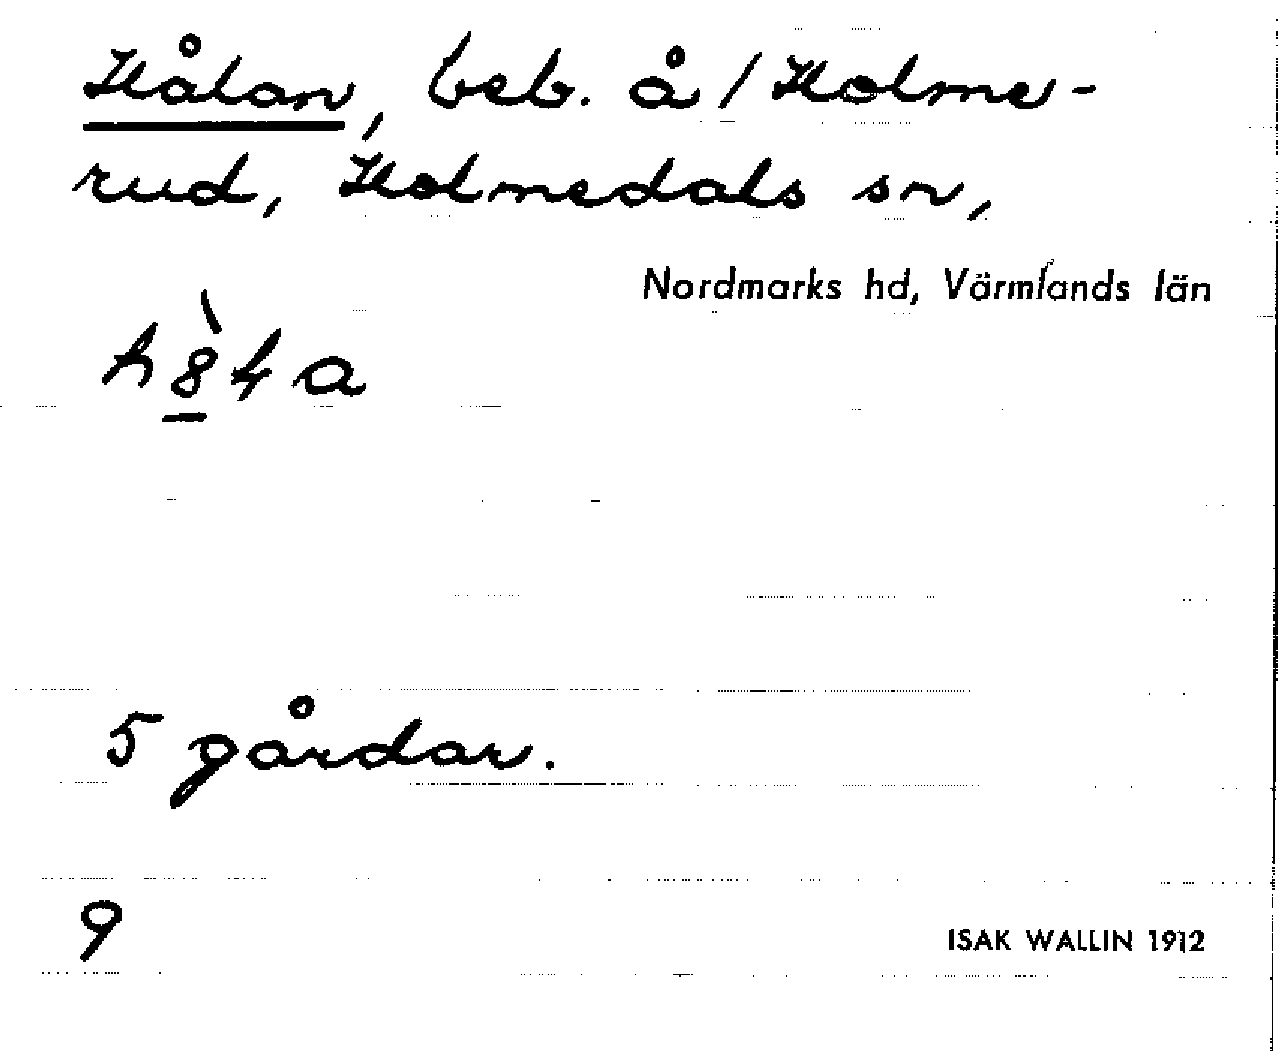 Hålan, beb. å / Holme-
rud, Holmedals sn,
Nordmarks hd, Värmlands län
5 gårdar.
9
ISAK WALLIN 1912